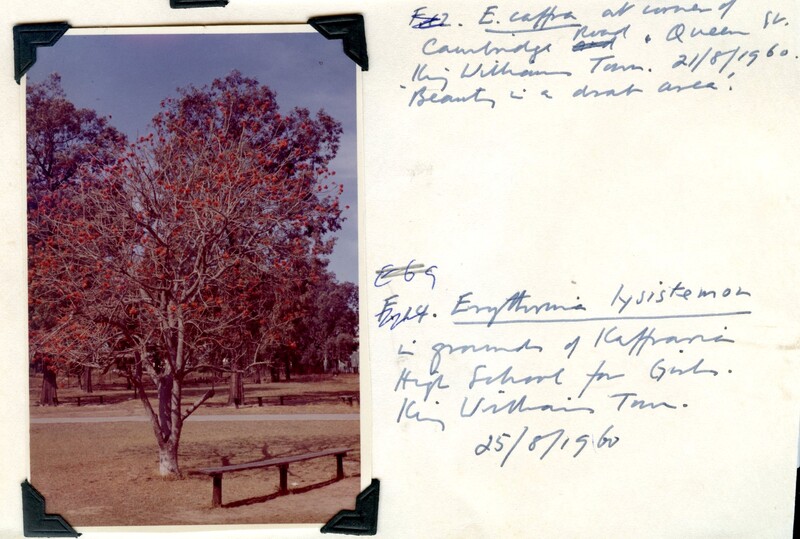 E. caffra at corner of
Cambridge Road & Queen St.
King Williams Town. 21/8/1960.
"Beauty in a drab area!
E 69
Erythrina lysistemon
in grounds of Kaffrarian
High School for Girls.
King Williams Town.
25/8/1960